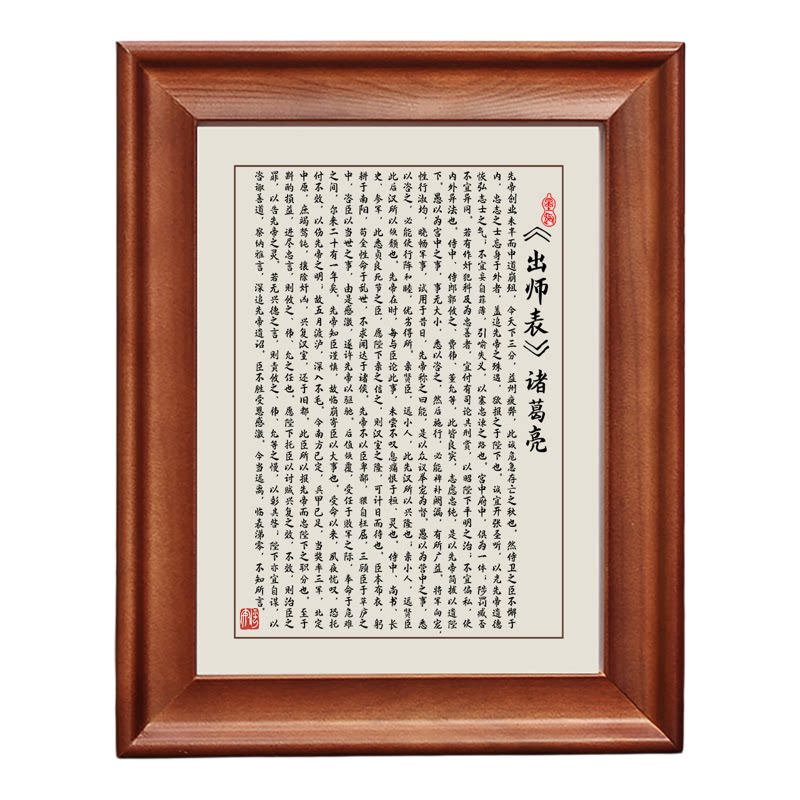 《出师表》诸葛亮
先帝创业未半而中道崩殂，今天下三分，益州疲弊，此诚危急存亡之秋也。然侍卫之臣不懈于
内，忠志之士忘身于外者，盖追先帝之殊遇，欲报之于陛下也。诚宜开张圣听，以光先帝遗德
恢弘志士之气；不宜妄自菲薄，引喻失义，以塞忠谏之路也。宫中府中，俱为一体；陟罚臧否
不宜异同。若有作奸犯科及为忠善者，宜付有司论其刑赏，以昭陛下平明之治；不宜偏私，使
内外异法也。侍中、侍郎郭攸之、费伟、董允等，此皆良实，志虑忠纯，是以先帝简拔以遗陛
下。愚以为宫中之事，事无大小，悉以咨之，然后施行，必能裨补阙漏，有所广益。将军向宠，
性行淑均，晓畅军事，试用于昔日，先帝称之曰能，是以众议举宠为督。愚以为营中之事，悉
以咨之，必能使行阵和睦，优劣得所。亲贤臣，远小人，此先汉所以兴隆也；亲小人，远贤臣
此后汉所以倾颓也。先帝在时，每与臣论此事，未尝不叹息痛恨于桓、灵也。侍中、尚书、长
史、参军，此悉贞良死节之臣，愿陛下亲之信之，则汉室之隆，可计日而待也。臣本布衣，躬
耕于南阳，苟全性命于乱世，不求闻达于诸侯。先帝不以臣卑鄙，猥自枉屈，三顾臣于草庐之
中，咨臣以当世之事，由是感激，遂许先帝以驱驰。后值倾覆，受任于败军之际，奉命于危难
之间，尔来二十有一年矣。先帝知臣谨慎，故临崩寄臣以大事也。受命以来，夙夜忧叹，恐托
付不效，以伤先帝之明；故五月渡泸，深入不毛。今南方已定，兵甲已足，当奖率三军，北定
中原，庶竭驽钝，攘除奸凶，兴复汉室，还于旧都。此臣所以报先帝而忠陛下之职分也。至于
斟酌损益，进尽忠言，则攸之、伟、允之任也。愿陛下托臣以讨贼兴复之效，不效，则治臣之
罪，以告先帝之灵。若无兴德之言，则责攸之、伟、允等之慢，以彰其咎；陛下亦宜自谋，以
咨诹善道，察纳雅言，深追先帝遗诏。臣不胜受恩感激。今当远离，临表涕零，不知所言。